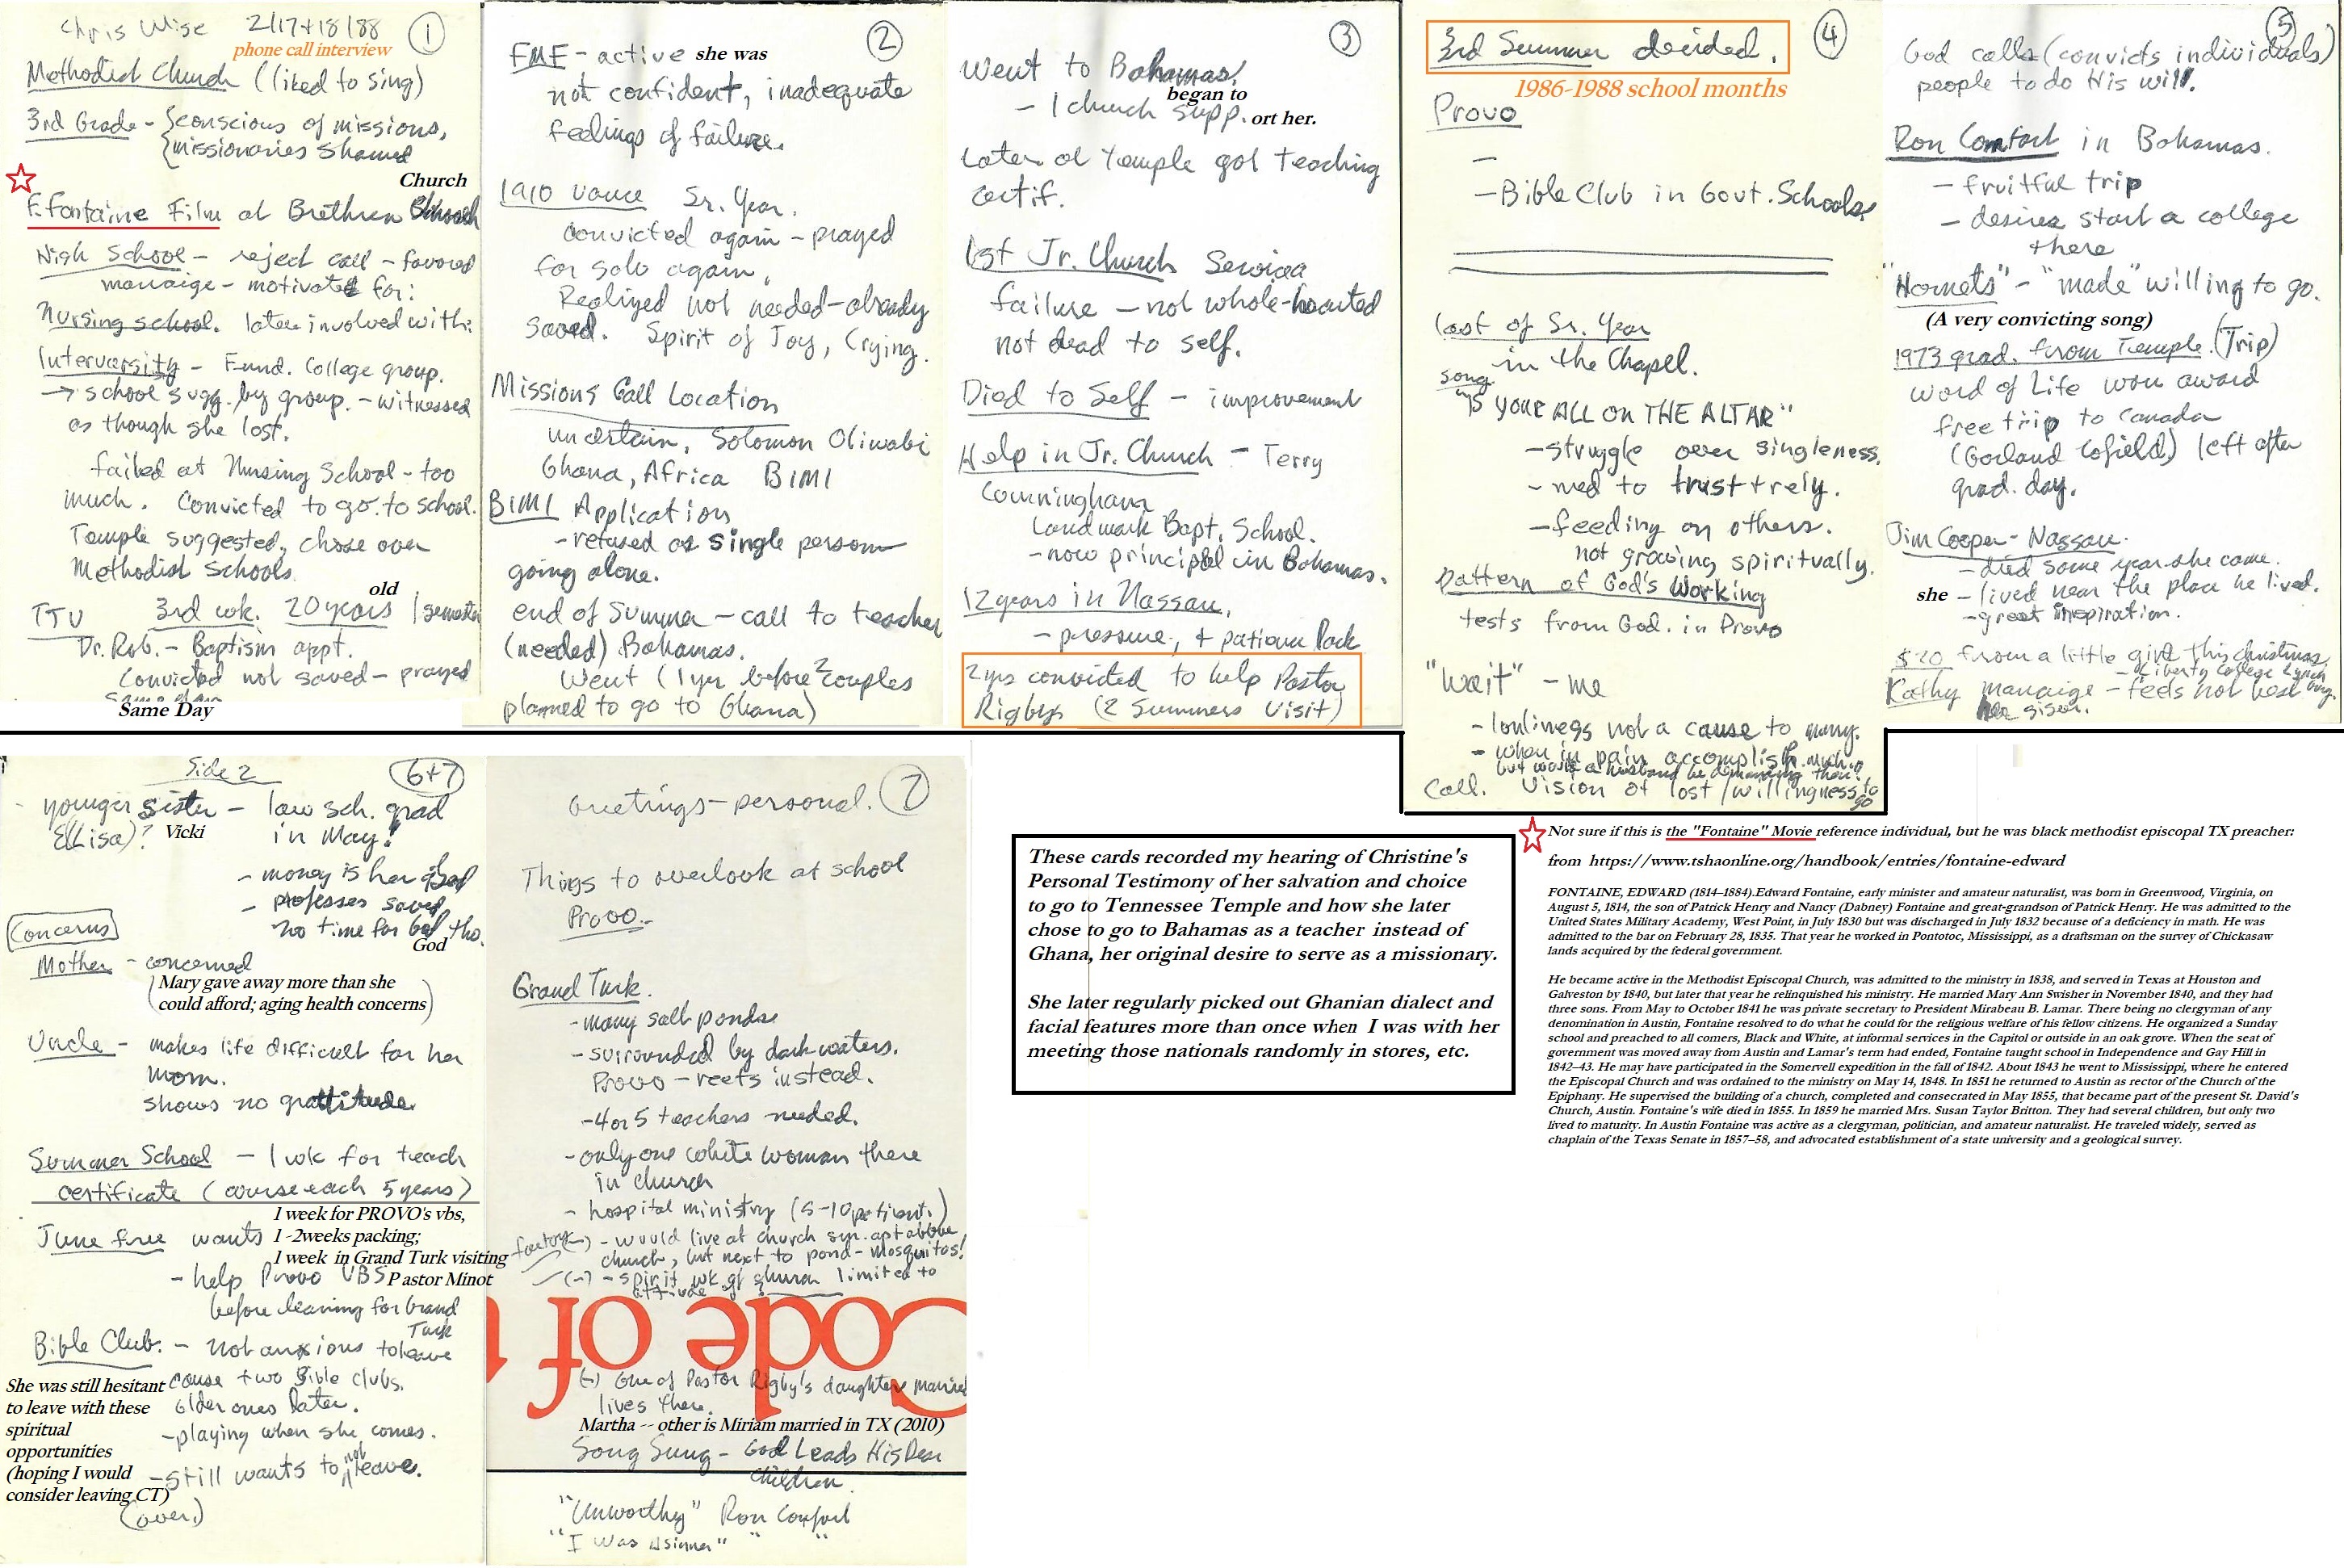 Chris Wise 2/17+18/88 ①
phone call interview
Methodist Church (liked to sing)
3rd Grade - {conscious of missions,
{missionaries shared
Church
F. Fontaine Film at Brethren
High School - reject call - favored
marraige - motivated for:
Nursing school. later involved with:
Intervarsity - Fund. College group.
→ school sugg. by group. - witnessed
as though she lost.
failed at Nursing School - too
much. Convicted to go to school.
Temple suggested, chose over
Methodist Schools.
old
TTU 3rd wk. 20 years 1 semester
Dr. Rob. - Baptism appt.
Convicted not saved - prayed
Same day
Same Day
②
FMF - active she was
not confident, inadequate
feelings of failure.
1910 Vance Sr. Year.
convicted again - prayed
for solo again,
Realized not needed - already
saved. Spirit of Joy, Crying.
Missions Call Location
uncertain, Solomon Oliwabi
Ghana, Africa BIMI
BIMI Application
- refused as single person
going alone.
end of Summer - call to teacher
(needed) Bahamas.
Went (1 yr before 2 couples
planned to go to Ghana)
③
Went to Bahamas,
began to
- 1 church supp. ort her.
Later at Temple got teaching
certif.
1st Jr. Church Service
failure - not whole-hearted
not dead to self.
Died to Self - improvement
Help in Jr. Church - Terry
Counninghana
Landmark Bapt. School.
- now principal in Bahamas.
12 years in Nassau,
- pressure, + patience lack
2 yrs convicted to help Pastor
Rigbys (2 Summers Visit)
3rd Summer decided. ④
1986-1988 school months
Provo
—
- Bible Club in Govt. Schools
last of Sr. Year
in the Chapel.
song
"IS YOUR ALL ON THE ALTAR"
- struggle over singleness.
- need to trust + rely.
- feeding on others.
not growing spiritually.
pattern of God's Working
tests from God. in Provo
"Wait" - me
- lonliness not a cause to marry.
- when in pain accomplish much.
but would a husband be demanding then?
Call. Vision of lost / willingness to
go
⑤
God calls (convicts individuals)
people to do His will.
Ron Comfort in Bahamas.
- fruitful trip
- desires start a college
there
"Hornets" - "made" willing to go.
(A very convicting song)
1973 grad. from Temple. (Trip)
Word of Life won award
free trip to Canada
(Garland Cofield) left after
grad. day.
Jim Cooper - Nassau.
- died same year she came.
she - lived near the place he lived.
- great inspiration.
$20 from a little girl this christmas.
- Liberty College Lynchburg.
Kathy marraige - feels not best
her sister.
Side 2 6+7
younger sister - law sch. grad
E(Lisa)? Vicki in May!
- money is her god
- professes saved
no time for God tho.
God
Concerns
Mother - concerned
(Mary gave away more than she
could afford; aging health concerns)
Uncle - makes life difficult for her
mom.
shows no grattitude.
Summer School - 1 wk for teach
certificate (course each 5 years)
1 week for PROVO's vbs,
June free wants 1 -2weeks packing;
1 week in Grand Turk visiting
- help Provo VBS Pastor Minot
before leaving for Grand
Turk
Bible Club. - not anxious to leave
cause two Bible clubs.
older ones later.
- playing when she comes.
- still wants to not leave.
She was still hesitant
to leave with these
spiritual
opportunities
(hoping I would
consider leaving CT)
(over)
Greetings - personal. ⑦
Things to overlook at school
Provo.-
Grand Turk.
- many salt ponds
- surrounded by dark waters.
Provo - reefs instead.
- 4 or 5 teachers needed.
- only one white woman there
in church
- hospital ministry (5-10 patient.)
factors (-) - would live at church syn. apt above
church, but next to pond - mosquitos!
(-) - spirit. wk. of church limited to
Code of
(-) One of Pastor Rigby's daughters married
lives there.
Martha -- other is Miriam married in TX (2010)
Song Sung - God Leads His Dear
Children.
"Unworthy" Ron Comfort
"I Was A Sinner" " "
These cards recorded my hearing of Christine's
Personal Testimony of her salvation and choice
to go to Tennessee Temple and how she later
chose to go to Bahamas as a teacher instead of
Ghana, her original desire to serve as a missionary.
She later regularly picked out Ghanian dialect and
facial features more than once when I was with her
meeting those nationals randomly in stores, etc.
Not sure if this is the "Fontaine" Movie reference individual, but he was black methodist episcopal TX preacher:
from https://www.tshaonline.org/handbook/entries/fontaine-edward
FONTAINE, EDWARD (1814–1884).Edward Fontaine, early minister and amateur naturalist, was born in Greenwood, Virginia, on
August 5, 1814, the son of Patrick Henry and Nancy (Dabney) Fontaine and great-grandson of Patrick Henry. He was admitted to the
United States Military Academy, West Point, in July 1830 but was discharged in July 1832 because of a deficiency in math. He was
admitted to the bar on February 28, 1835. That year he worked in Pontotoc, Mississippi, as a draftsman on the survey of Chickasaw
lands acquired by the federal government.
He became active in the Methodist Episcopal Church, was admitted to the ministry in 1838, and served in Texas at Houston and
Galveston by 1840, but later that year he relinquished his ministry. He married Mary Ann Swisher in November 1840, and they had
three sons. From May to October 1841 he was private secretary to President Mirabeau B. Lamar. There being no clergyman of any
denomination in Austin, Fontaine resolved to do what he could for the religious welfare of his fellow citizens. He organized a Sunday
school and preached to all comers, Black and White, at informal services in the Capitol or outside in an oak grove. When the seat of
government was moved away from Austin and Lamar's term had ended, Fontaine taught school in Independence and Gay Hill in
1842–43. He may have participated in the Somervell expedition in the fall of 1842. About 1843 he went to Mississippi, where he entered
the Episcopal Church and was ordained to the ministry on May 14, 1848. In 1851 he returned to Austin as rector of the Church of the
Epiphany. He supervised the building of a church, completed and consecrated in May 1855, that became part of the present St. David's
Church, Austin. Fontaine's wife died in 1855. In 1859 he married Mrs. Susan Taylor Britton. They had several children, but only two
lived to maturity. In Austin Fontaine was active as a clergyman, politician, and amateur naturalist. He traveled widely, served as
chaplain of the Texas Senate in 1857–58, and advocated establishment of a state university and a geological survey.